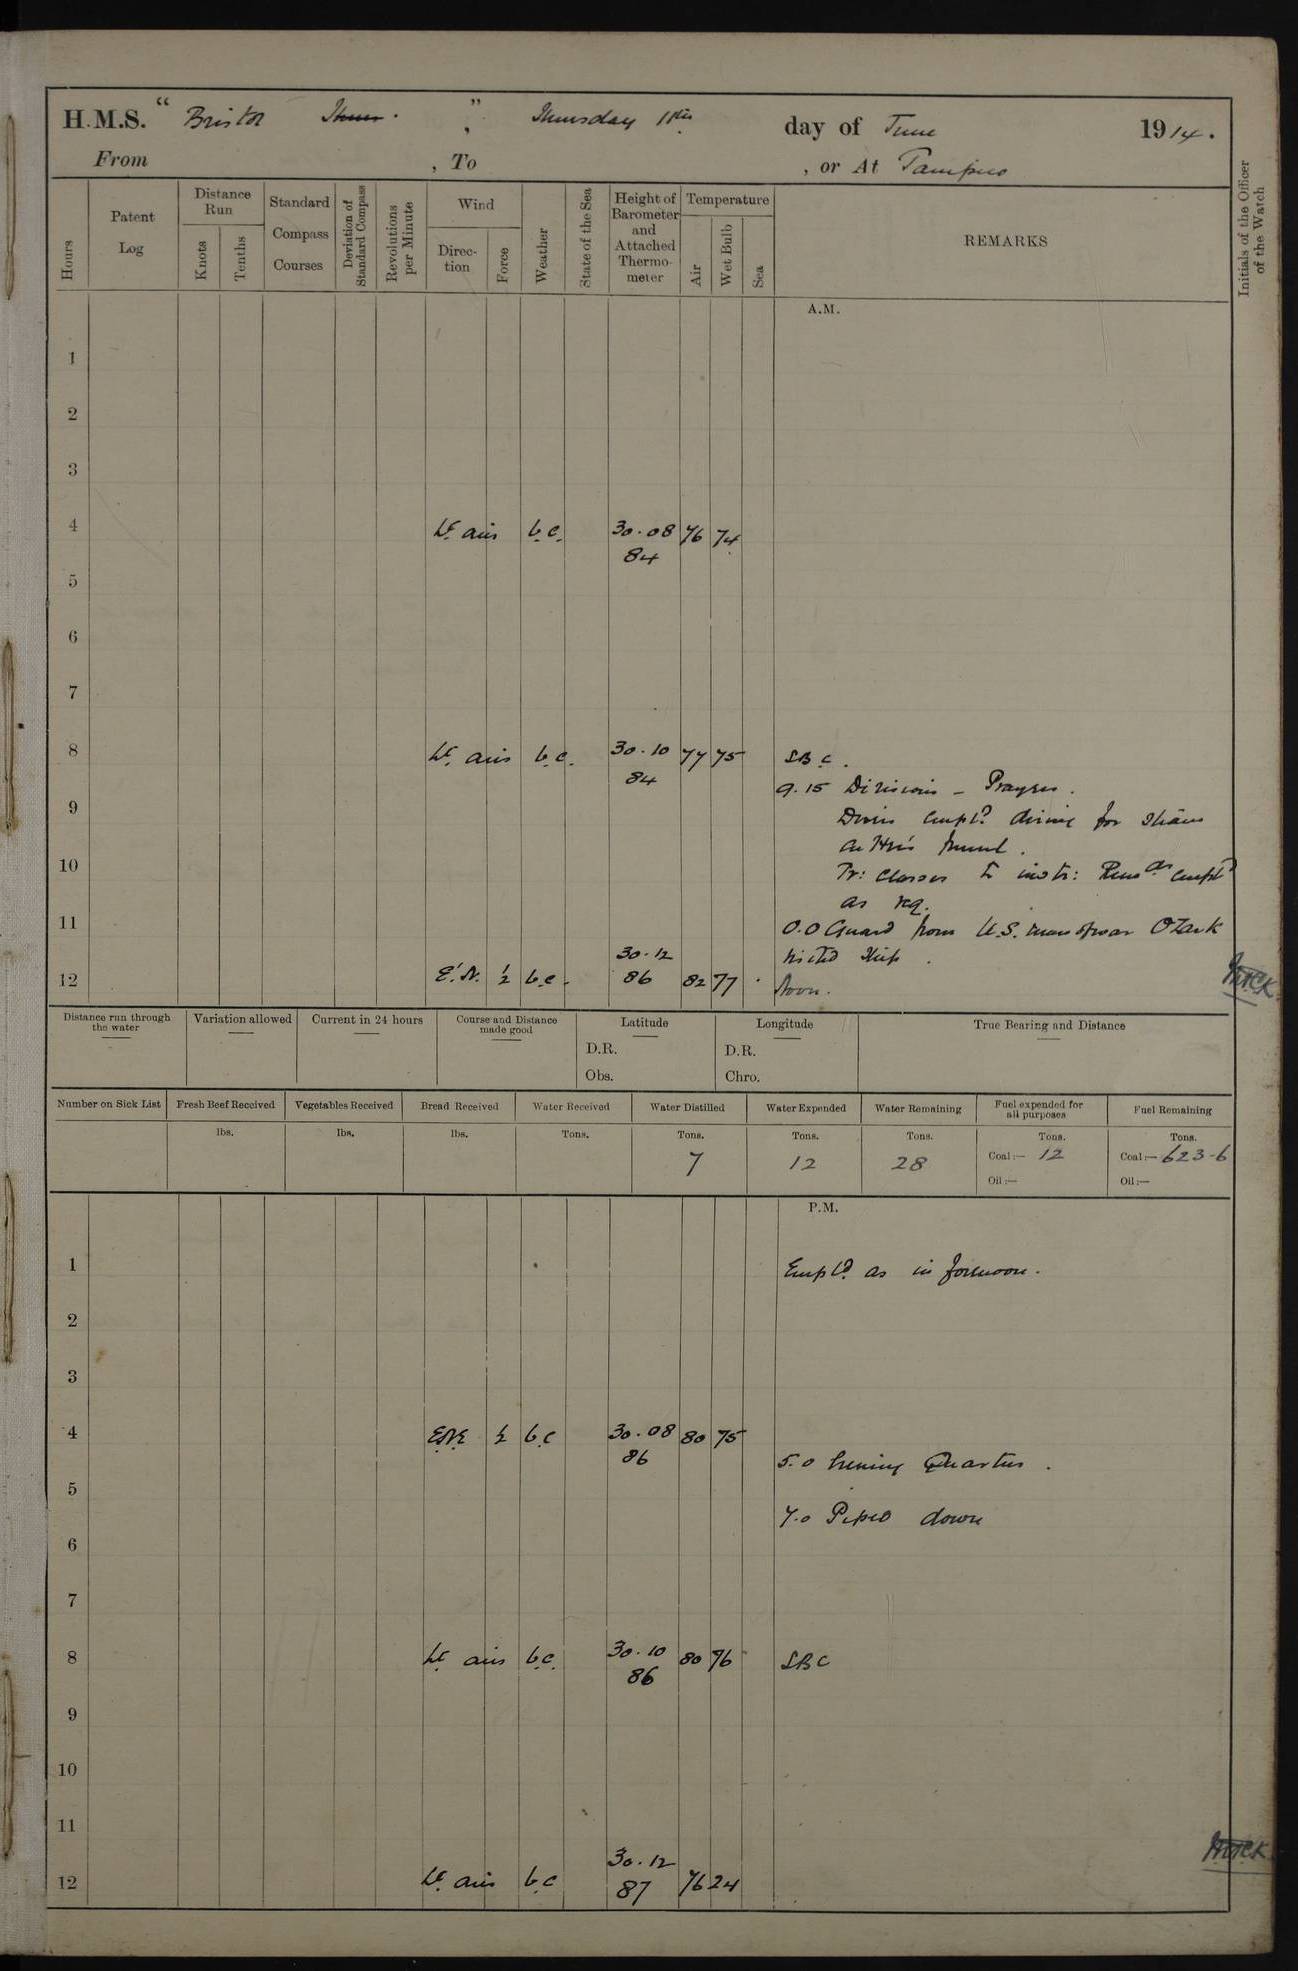 H.M.S. “ Bristol Thur. ” , Thursday 11th day of June 1914.
From , To , or At Tampico
Hours
Patent Log
Distance Run
Knots
Tenths
Standard Compass Courses
Deviation of Standard Compass
Revolutions per Minute
Wind
Direction
Force
Weather
State of the Sea
Height of Barometer and Attached Thermometer
Temperature
Air
Wet Bulb
Sea
REMARKS
Initials of the Officer of the Watch
A.M.
1
2
3
4 Lt. airs b.c. 30.08 76 74
84
5
6
7
8 Lt. airs b.c. 30.10 77 75 SBC.
84
9.15 Divisions - Prayers.
9
Divers empld. diving for
10
Tr: classes to instr: Remdr empld
as req.
11
0.0 Guard from U.S. man of war Ozark
visited ship.
30.12
12 E'N. ½ b.c. 86 82 77 Noon.
Distance run through the water
Variation allowed
Current in 24 hours
Course and Distance made good
Latitude
D.R.
Obs.
Longitude
D.R.
Chro.
True Bearing and Distance
Number on Sick List
Fresh Beef Received
Vegetables Received
Bread Received
Water Received
Water Distilled
Water Expended
Water Remaining
Fuel expended for all purposes
Fuel Remaining
lbs. lbs. lbs. Tons. Tons. Tons. Tons. Tons. Tons.
7 12 28 Coal:— 12 Coal:— 623.6
Oil:— Oil:—
P.M.
1 Empld. as in forenoon.
2
3
4 ENE ½ b.c 30.08 80 75
86
5.0 Evening Quarters.
5
7.0 Piped down
6
7
8 Lt. airs b.c. 30.10 80 76 SBC
86
9
10
11
30.12
12 Lt. airs b.c 87 76 24